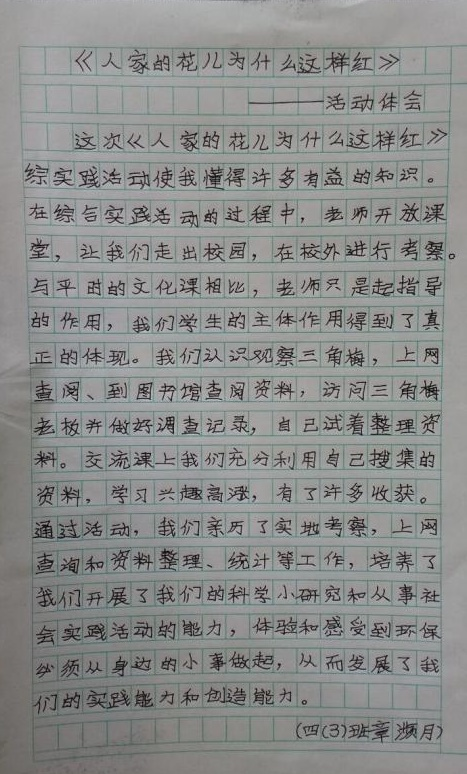 《人家的花儿为什么这样红》
——活动体会
这次《人家的花儿为什么这样红》
综实践活动使我懂得许多有益的知识。
在综合实践活动的过程中，老师开放课
堂，让我们走出校园，在校外进行考察。
与平时的文化课相比，老师只是起指导
的作用，我们学生的主体作用得到了真
正的体现。我们认识观察三角梅，上网
查阅、到图书馆查阅资料，访问三角梅
老板并做好调查记录，自己试着整理资
料。交流课上我们充分利用自己搜集的
资料，学习兴趣高涨，有了许多收获。
通过活动，我们亲历了实地考察，上网
查询和资料整理、统计等工作，培养了
我们开展了我们的科学小研究和从事社
会实践活动的能力，体验和感受到环保
必须从身边的小事做起，从而发展了我
们的实践能力和创造能力。
(四(3)班章濒月)